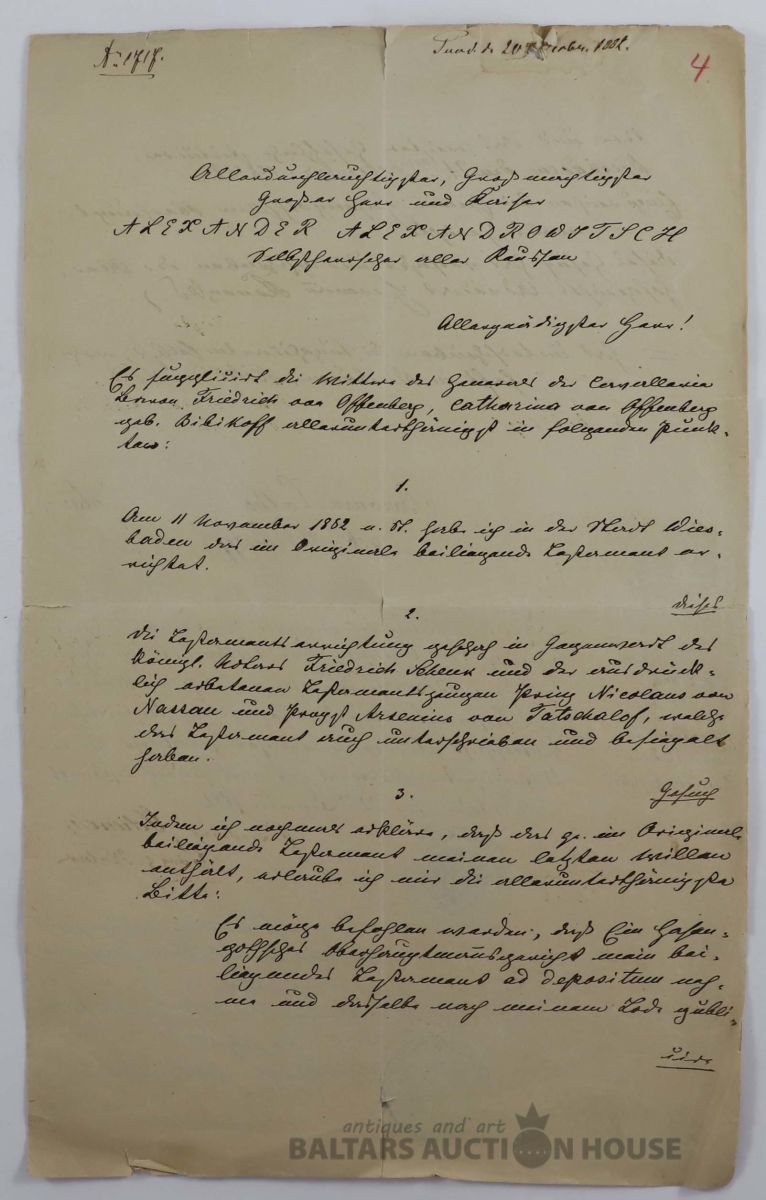 No 1717.
20 Octobr. 1882.
4
Allerdurchlauchtigster, Großmächtigster
Großer Herr und Kaiser
ALEXANDER ALEXANDROWITSCH
Selbstherrscher aller Reussen
Allergnädigster Herr!
Es supplicirt die Wittwe des Generals der Cavallerie
Baron Friedrich von Offenberg, Catharina von Offenberg
geb. Bibikoff allerunterthänigst in folgenden Punk-
ten:
1.
Am 11 November 1882 n. St. habe ich in der Stadt Wies-
baden das im Originale beiliegende Testament er-
richtet.
2.
dieses
Die Testamentserrichtung geschah in Gegenwart des
Königl. Notars Friedrich Schenk und der ausdrück-
lich erbetenen Testamentszeugen Prinz Nicolaus von
Nassau und Propst Arsenius von Tatschalof, welche
das Testament auch unterschrieben und besiegelt
haben.
3.
Gesuch
Indem ich nochmals erkläre, daß das qu. im Originale
beiliegende Testament meinen letzten Willen
enthält, erlaube ich mir die allerunterthänigste
Bitte:
Es möge befohlen werden, daß Ein Hasen-
pothsches Oberhauptmannsgericht mein bei-
liegendes Testament ad depositum neh-
me und dasselbe nach meinem Tode publi-
cire
antiques and art
BALTARS AUCTION HOUSE